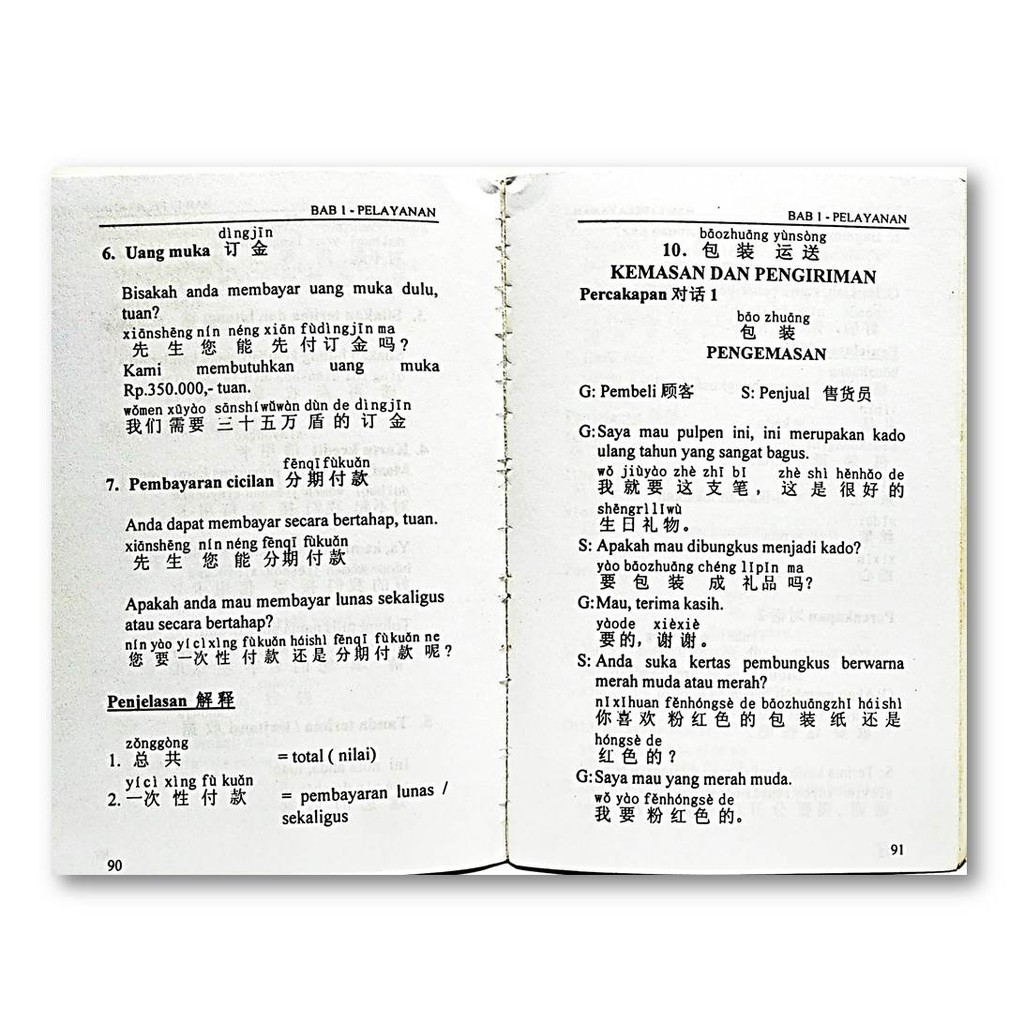 BAB 1 - PELAYANAN
dìngjīn
6. Uang muka 订 金
Bisakah anda membayar uang muka dulu,
tuan?
xiānshēng nín néng xiān fùdìngjīn ma
先 生 您 能 先 付 订 金 吗？
Kami membutuhkan uang muka
Rp.350.000,- tuan.
wǒmen xūyào sānshíwǔwàn dùn de dìngjīn
我们 需要 三十五万 盾 的 订 金
fēnqī fùkuǎn
7. Pembayaran cicilan 分期付款
Anda dapat membayar secara bertahap, tuan.
xiānshēng nín néng fēnqī fùkuǎn
先 生 您 能 分期 付 款
Apakah anda mau membayar lunas sekaligus
atau secara bertahap?
nín yào yícìxìng fùkuǎn háishì fēnqī fùkuǎn ne
您 要 一次 性 付 款 还是 分期 付 款 呢？
Penjelasan 解释
zǒnggòng
1. 总 共 = total ( nilai)
yícì xìng fù kuǎn
2. 一次 性 付 款 = pembayaran lunas /
sekaligus
90
BAB 1 - PELAYANAN
bāozhuāng yùnsòng
10. 包 装 运 送
KEMASAN DAN PENGIRIMAN
Percakapan 对话 1
bāo zhuāng
包 装
PENGEMASAN
G: Pembeli 顾客 S: Penjual 售货员
G:Saya mau pulpen ini, ini merupakan kado
ulang tahun yang sangat bagus.
wǒ jiùyào zhè zhī bǐ zhè shì hěnhǎo de
我 就 要 这 支 笔， 这 是 很 好 的
shēngrìlǐwù
生日礼物。
S: Apakah mau dibungkus menjadi kado?
yào bāozhuāng chéng lǐpǐn ma
要 包 装 成 礼品 吗？
G:Mau, terima kasih.
yàode xièxiè
要的， 谢谢。
S: Anda suka kertas pembungkus berwarna
merah muda atau merah?
nǐxǐhuan fěnhóngsè de bāozhuāngzhǐ háishì
你喜欢 粉红色的 包装 纸 还是
hóngsè de
红色的？
G:Saya mau yang merah muda.
wǒ yào fěnhóngsè de
我 要 粉 红色 的。
91